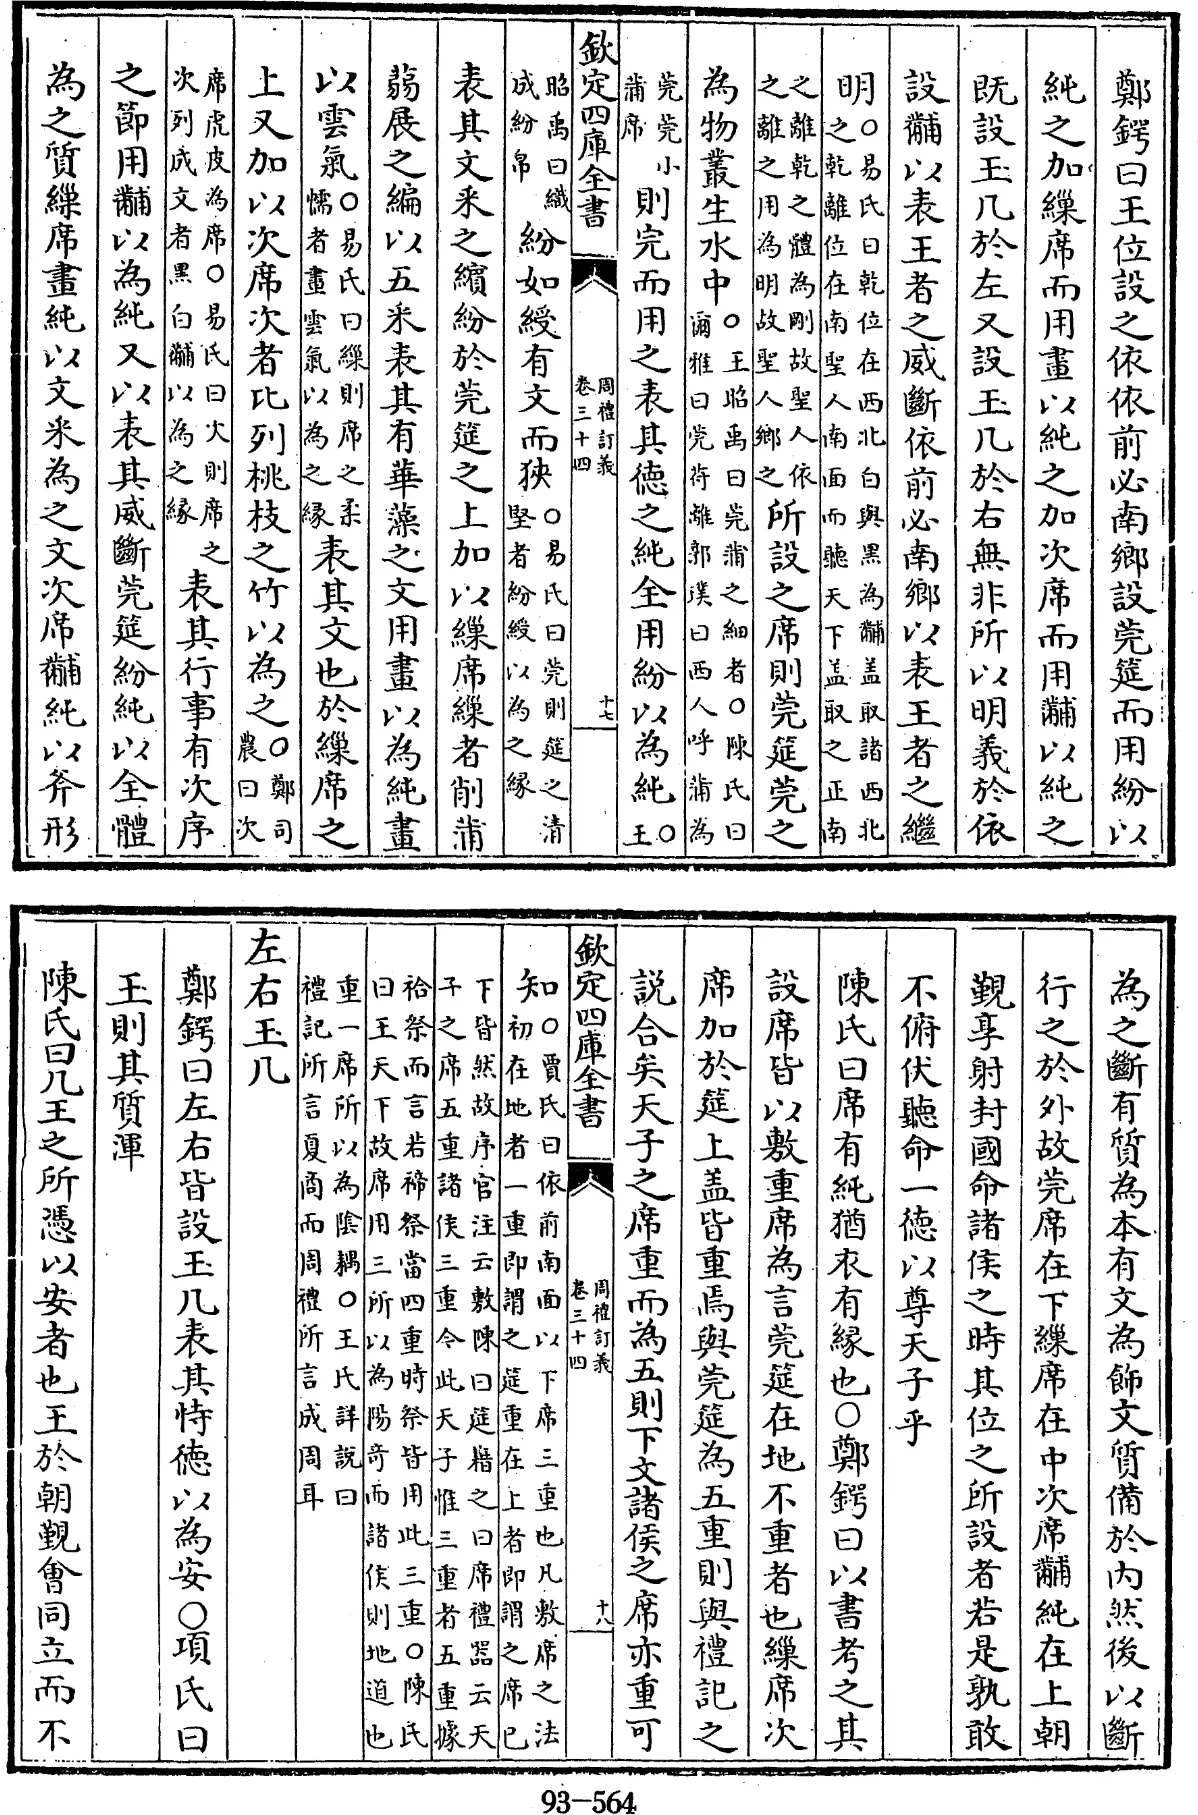 鄭鍔曰王位設之依依前必南鄉設莞筵而用紛以
純之加繅席而用畫以純之加次席而用黼以純之
既設玉几於左又設玉几於右無非所以明義於依
設黼以表王者之威斷依前必南鄉以表王者之繼
明○易氏曰乾位在西北白與黑為黼盖取諸西北
之乾離位在南聖人南面而聽天下盖取之正南
之離乾之體為剛故聖人依
之離之用為明故聖人鄉之所設之席則莞筵莞之
為物叢生水中○王昭禹曰莞蒲之細者○陳氏曰
爾雅曰莞苻離郭璞曰西人呼蒲為
莞莞小
蒲席則完而用之表其德之純全用紛以為純○
王
欽定四庫全書
周禮訂義
卷三十四
十七
昭禹曰織
成紛帛紛如綬有文而狹○易氏曰莞則筵之清
堅者紛綬以為之緣
表其文采之繽紛於莞筵之上加以繅席繅者削蒲
蒻展之編以五采表其有華藻之文用畫以為純畫
以雲氣○易氏曰繅則席之柔
懦者畫雲氣以為之緣表其文也於繅席之
上又加以次席次者比列桃枝之竹以為之○鄭司
農曰次
席虎皮為席○易氏曰次則席之
次列成文者黑白黼以為之緣表其行事有次序
之節用黼以為純又以表其威斷莞筵紛純以全體
為之質繅席畫純以文采為之文次席黼純以斧形
為之斷有質為本有文為飾文質備於内然後以斷
行之於外故莞席在下繅席在中次席黼純在上朝
覲享射封國命諸侯之時其位之所設者若是孰敢
不俯伏聽命一德以尊天子乎
陳氏曰席有純猶衣有緣也○鄭鍔曰以書考之其
設席皆以敷重席為言莞筵在地不重者也繅席次
席加於筵上盖皆重焉與莞筵為五重則與禮記之
説合矣天子之席重而為五則下文諸侯之席亦重可
欽定四庫全書
周禮訂義
卷三十四
十八
知○賈氏曰依前南面以下席三重也凡敷席之法
初在地者一重即謂之筵重在上者即謂之席已
下皆然故序官注云敷陳曰筵藉之曰席禮器云天
子之席五重諸侯三重今此天子惟三重者五重據
祫祭而言若禘祭當四重時祭皆用此三重○陳氏
曰王天下故席用三所以為陽竒而諸侯則地道也
重一席所以為陰耦○王氏詳説曰
禮記所言夏商而周禮所言成周耳
左右玉几
鄭鍔曰左右皆設玉几表其恃德以為安○項氏曰
玉則其質渾
陳氏曰几王之所憑以安者也王於朝覲會同立而不
93-564